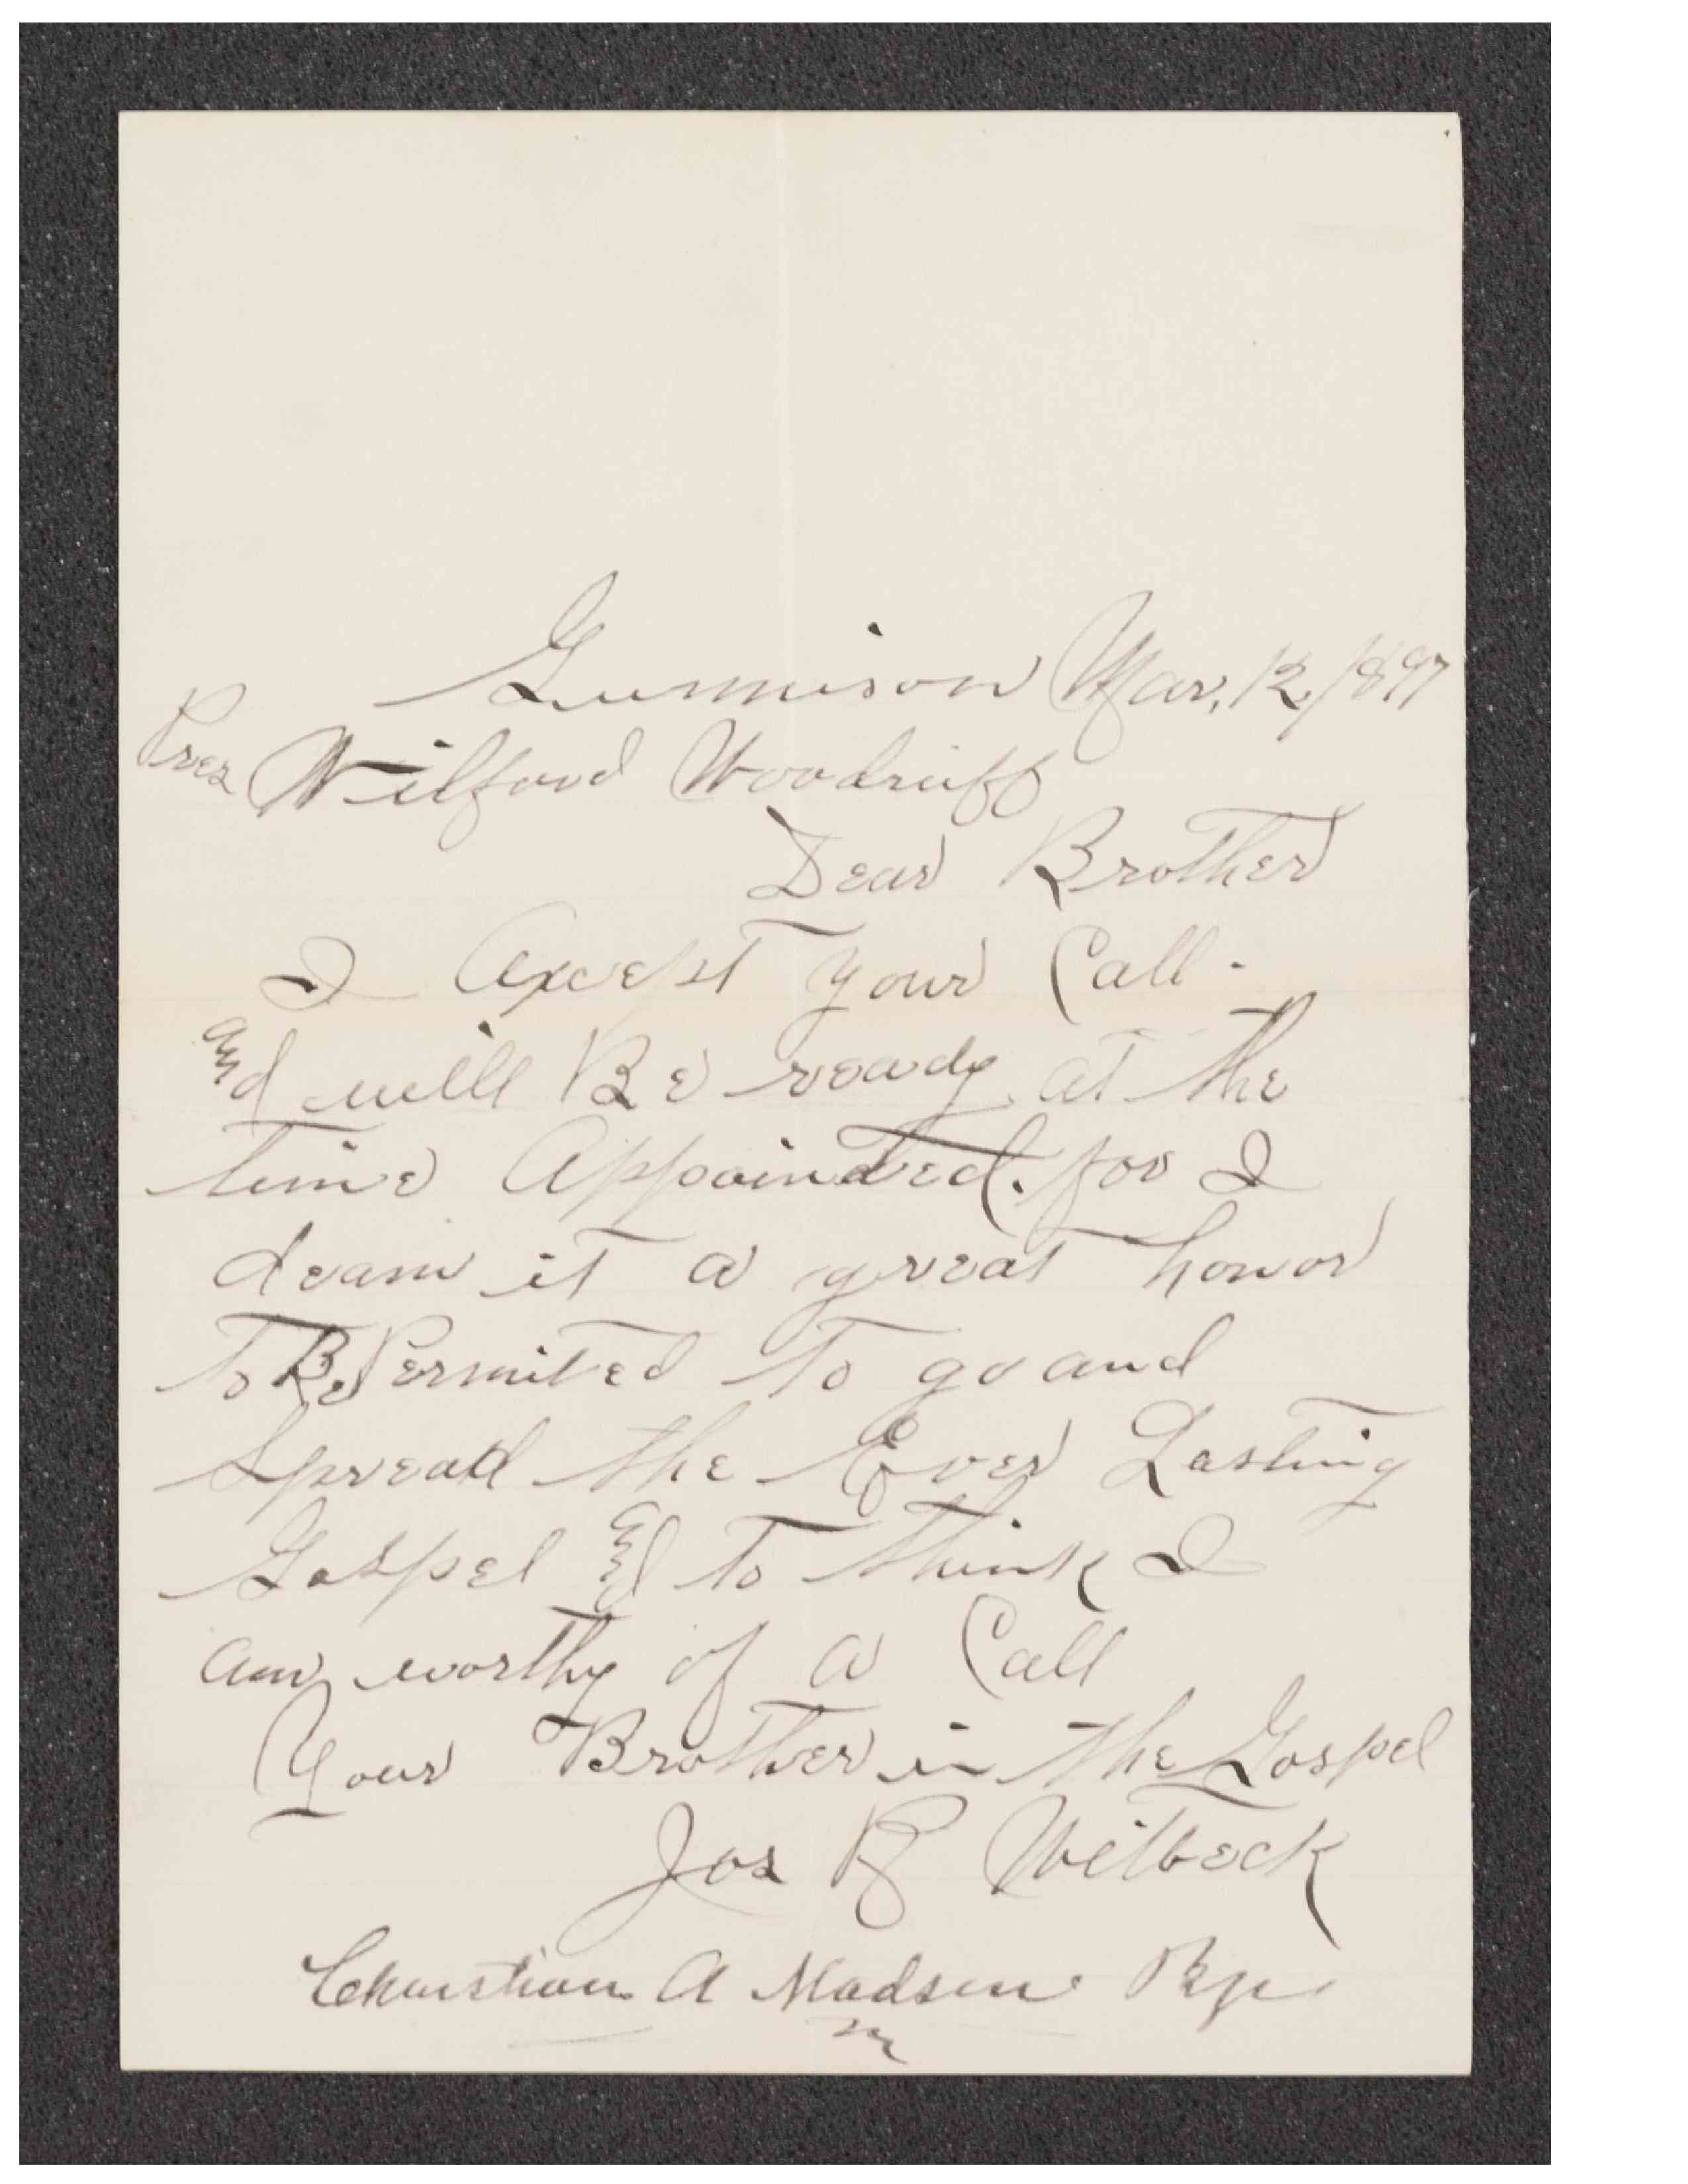 Gunnison Mar, 12, 1897
Pres Wilford Woodruff
Dear Brother
I Axcept your Call -
and will Be ready at the
time Appointed. for I
deam it a great honor
to Be Permited to go and
Spread the Ever Lasting
Gospel and to think I
am worthy of a Call
Your Brother in the Gospel
Jos R Witbeck
Christian A Madsen Bp